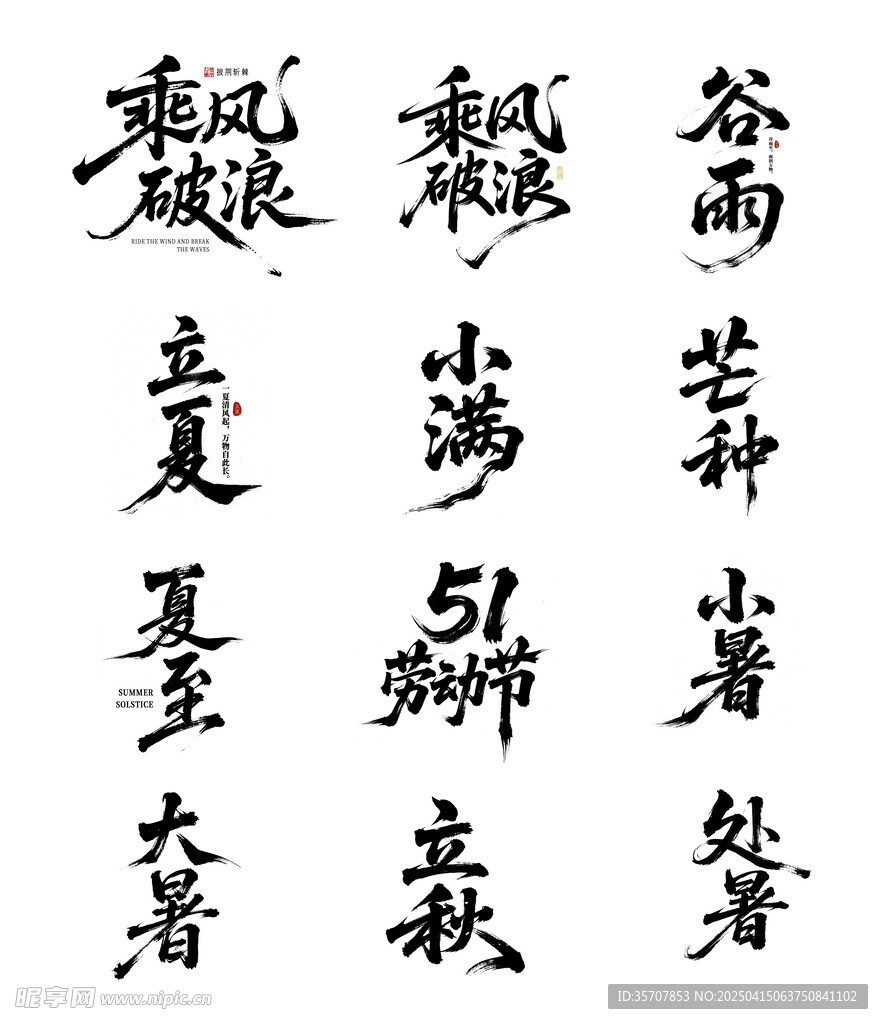 披荆斩棘
乘风
破浪
RIDE THE WIND AND BREAK
THE WAVES
乘风
破浪
谷
雨
立
夏
一夏清风起，万物自此长。
小
满
芒
种
夏
至
SUMMER
SOLSTICE
51
劳动节
小
暑
大
暑
立
秋
处
暑
昵享网 www.nipic.cn
ID:35707853 NO:20250415063750841102